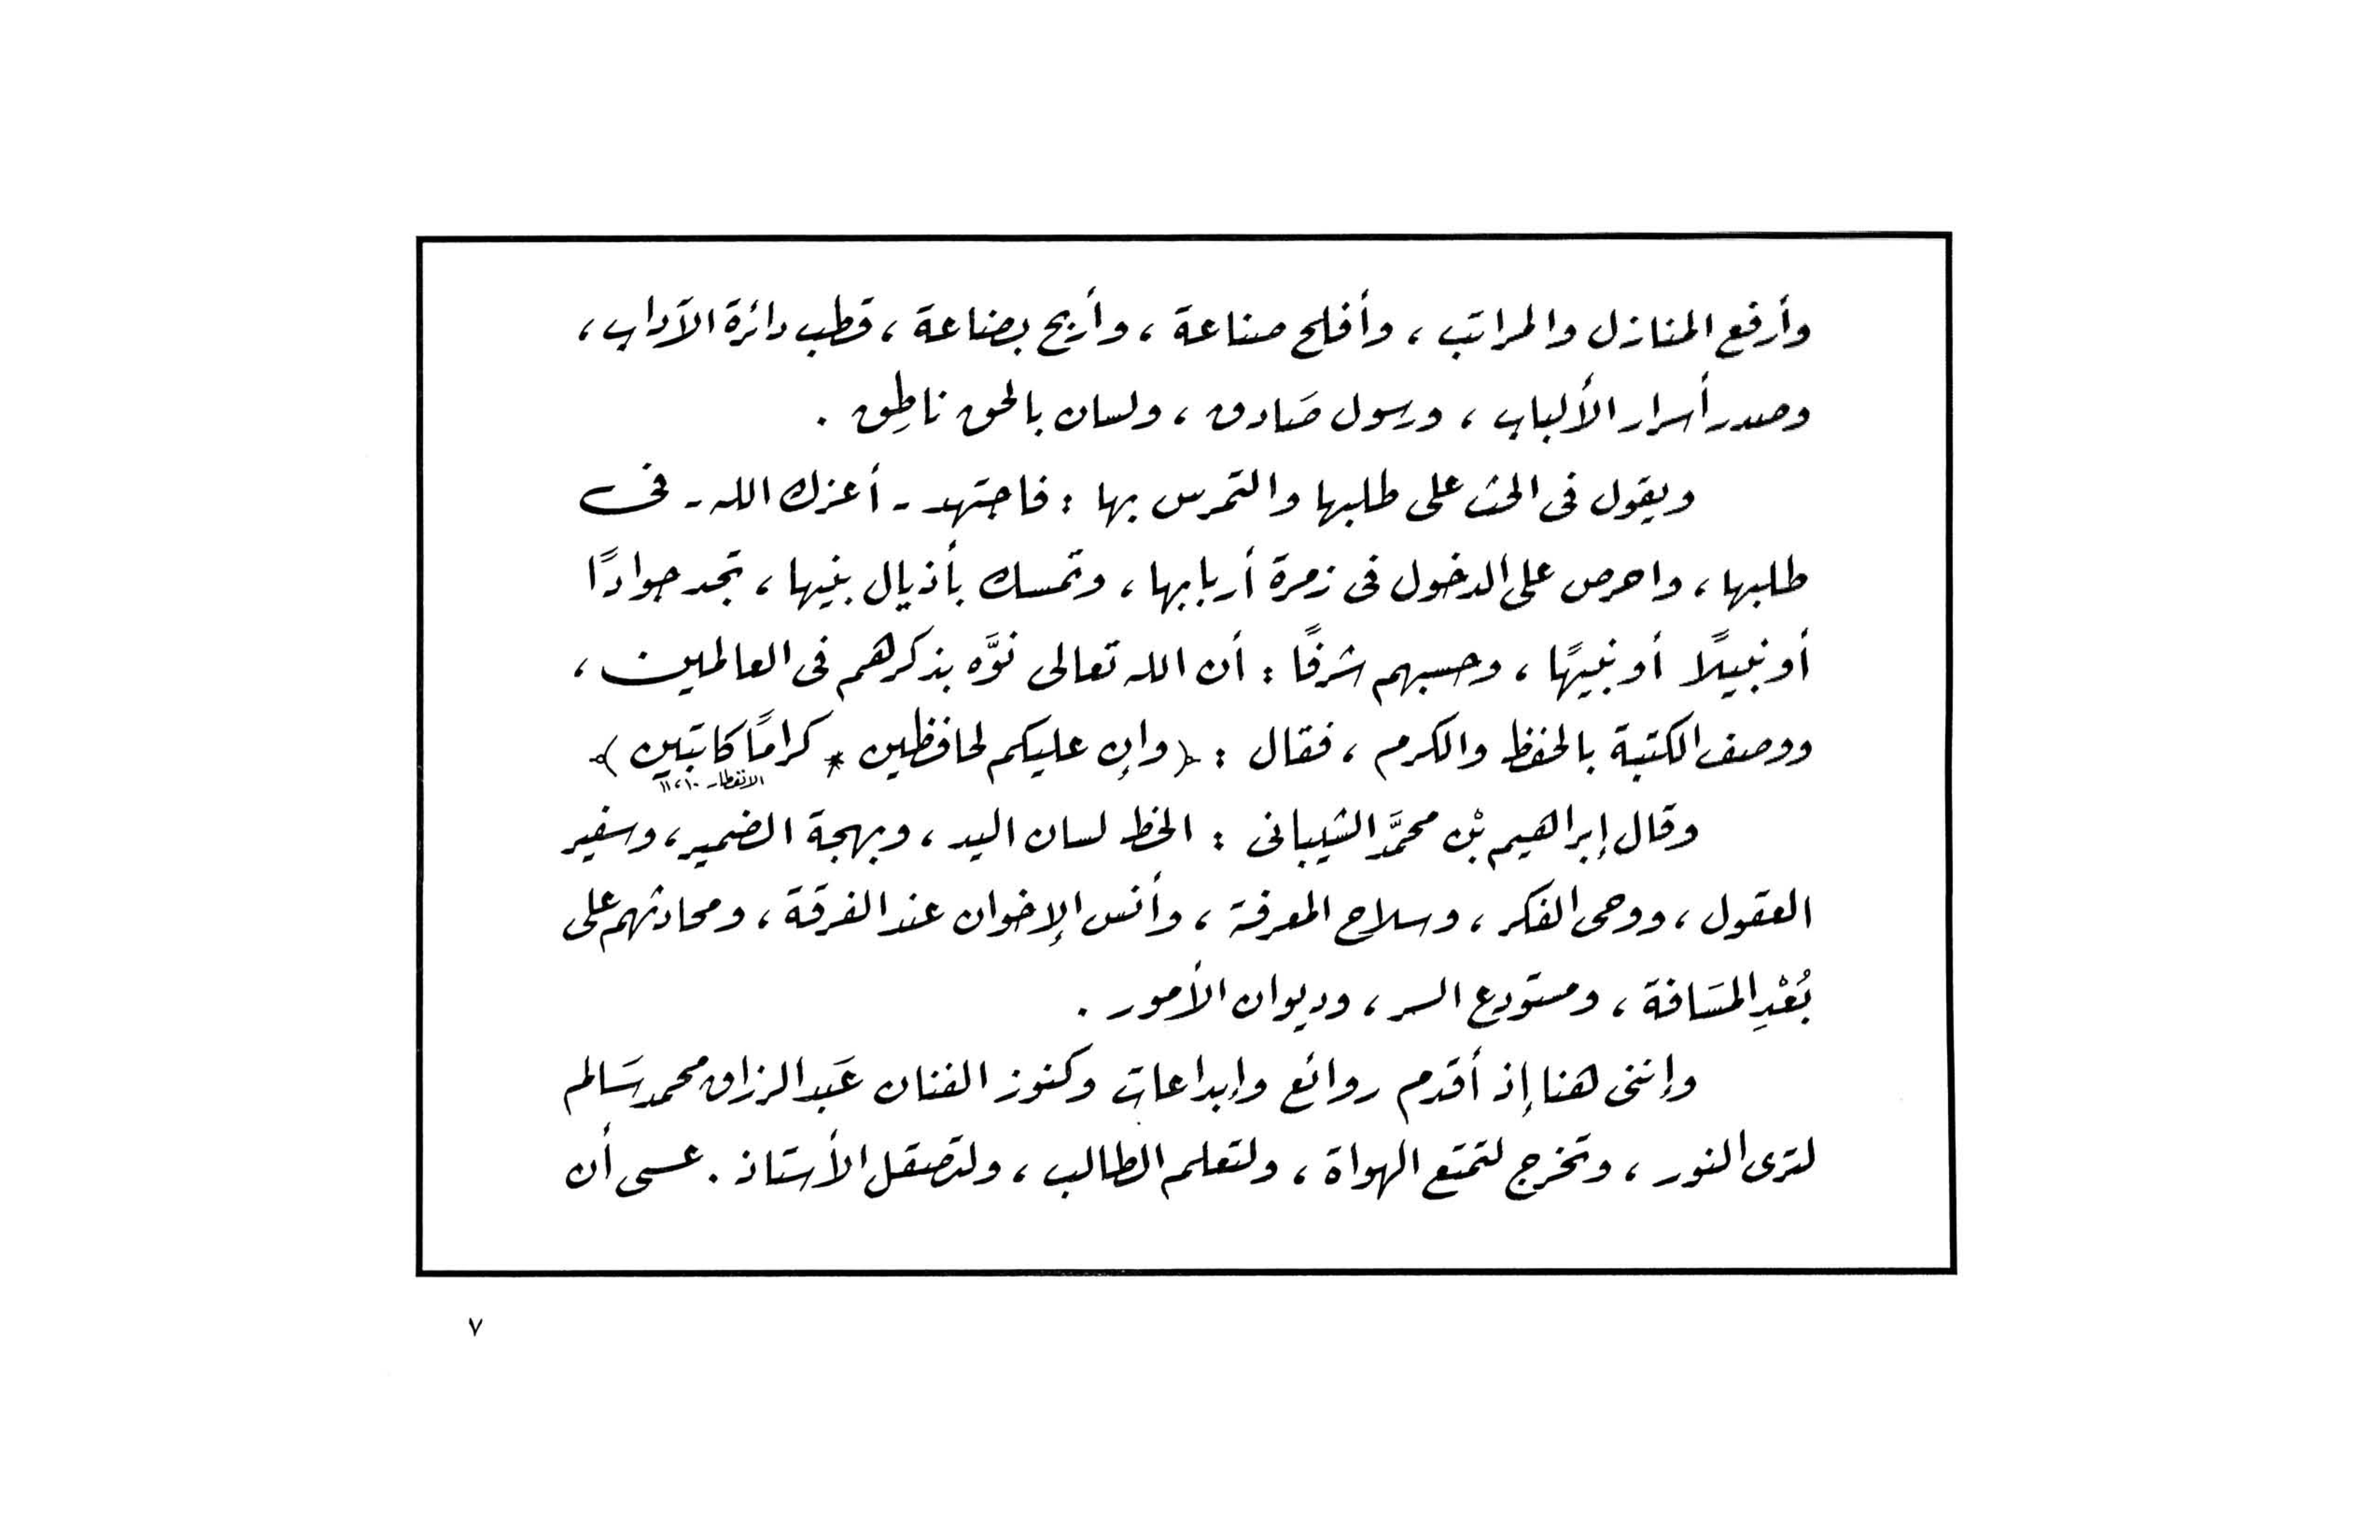 وأرفع المنازل والمراتب ، وأفلح صناعة ، وأربح بضاعة ، قطب دائرة الآداب ،
وصدر أسرار الألباب ، ورسول صَادق ، ولسان بالحق ناطِق .
ويقول فى الحث على طلبها والتمرس بها : فاجتهد - أعزك الله - فى
طلبها ، واحرص على الدخول فى زمرة أربابها ، وتمسك بأذيال بنيها ، تجد جوادًا
أو نبيلًا أو نبيهًا ، وحسبهم شرفًا : أن الله تعالى نوَّه بذكرهم فى العالمين ،
ووصف الكتبة بالحفظ والكرم ، فقال : ﴿وإن عليكم لحافظين * كرامًا كاتبين﴾
الانفطار ١٠، ١١
وقال إبراهيم بْن محمَّد الشيبانى : الخط لسان اليد ، وبهجة الضمير ، وسفير
العقول ، ووحى الفكر ، وسلاح المعرفة ، وأنس الإخوان عند الفرقة ، ومحادثهم على
بُعْدِ المسَافة ، ومستودع السر ، وديوان الأمور .
وإننى هنا إذ أقدم روائع وإبداعات وكنوز الفنان عَبد الرزاق محمد سَالم
لترى النور ، وتخرج لتمتع الهواة ، ولتعلم الطالب ، ولتصقل الأستَاذ . عسى أن
٧